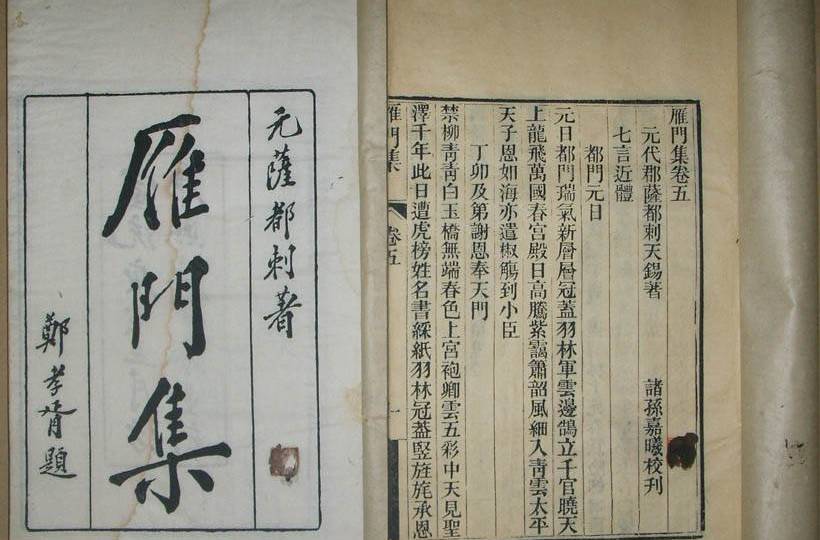 元薩都刺著
雁門集
鄭孝胥題
雁門集卷五
元代郡薩都刺天錫著 諸孫嘉曦校刊
七言近體
都門元日
元日都門瑞氣新層層冠蓋羽林軍雲邊鵠立千官曉天
上龍飛萬國春宮殿日高騰紫靄簫韶風細入青雲太平
天子恩如海亦遣椒觴到小臣
丁卯及第謝恩奉天門
禁柳青青白玉橋無端春色上宮袍卿雲五彩中天見聖
澤千年此日遭虎榜姓名書綵紙羽林冠蓋竪旌旄承恩
雁門集 卷五 一